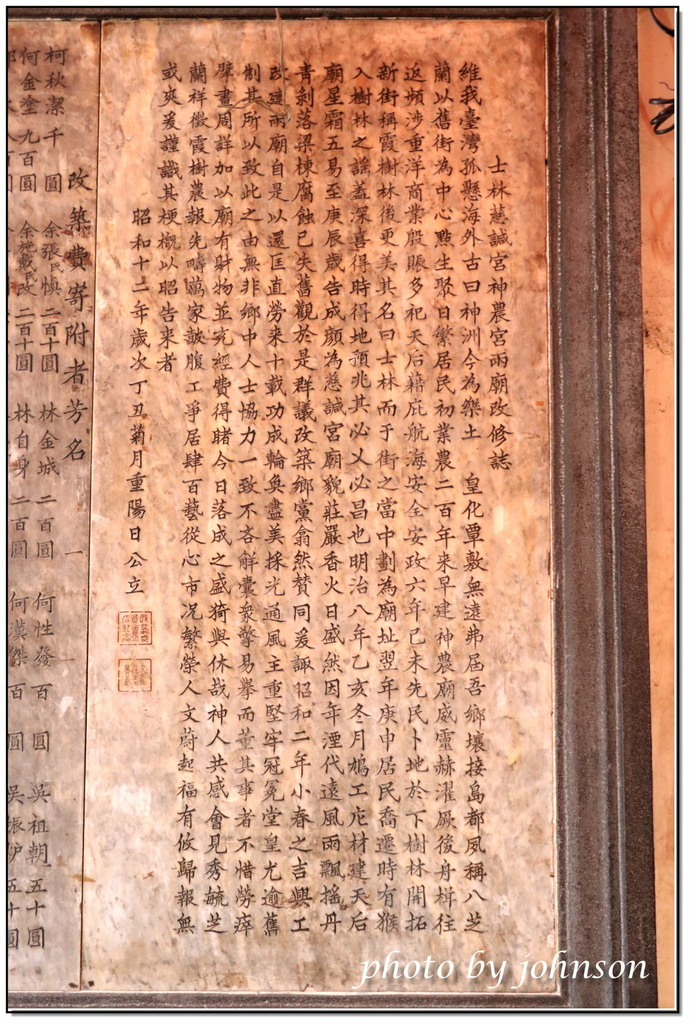 士林慈諴宮神農宮兩廟改修誌
維我臺灣孤懸海外古曰神洲今為樂土 皇化覃敷無遠弗屆吾鄉壤接島都夙稱八芝
蘭以舊街為中心點生聚日繁居民初業農二百年来早建神農廟威靈赫濯厥後舟楫往
返頻涉重洋商業殷賑多祀天后藉庇航海安全安政六年己未先民卜地於下樹林開拓
新街稱霞樹林後更美其名曰士林而于街之當中劃為廟址翌年庚申居民喬遷時有猴
入樹林之謠蓋深喜得時得地預兆其必乂必昌也明治八年乙亥冬月鳩工庀材建天后
廟星霜五易至庚辰歲告成顏為慈諴宮廟貌莊嚴香火日盛然因年湮代遠風雨飄搖丹
青剝落梁棟腐蝕已失舊觀於是群議改築鄉黨翁然賛同爰諏昭和二年小春之吉興工
改建兩廟自是以還匡直勞来十載功成輪奐盡美採光通風主重堅牢冠冕堂皇尤逾舊
制其所以致此之由無非鄉中人士協力一致不吝解囊衆擎易舉而董其事者不惜勞瘁
擘畫周詳加以廟有財物並充經費得睹今日落成之盛猗與休哉神人共感會見秀毓芝
蘭祥徵霞樹農報先疇萬家鼓腹工爭居肆百藝從心市况繁榮人文蔚起福有攸歸報無
或爽爰謹識其梗概以昭告来者
昭和十二年歲次丁丑菊月重陽日公立
改築費寄附者芳名 一
柯秋潔 千圓 余張氏慎 二百十圓 林金城 二百圓 何性發 百圓 吳祖朝 五十圓
何金塗 九百圓 二百十圓 林自身 二百圓 百圓 五十圓
photo by johnson